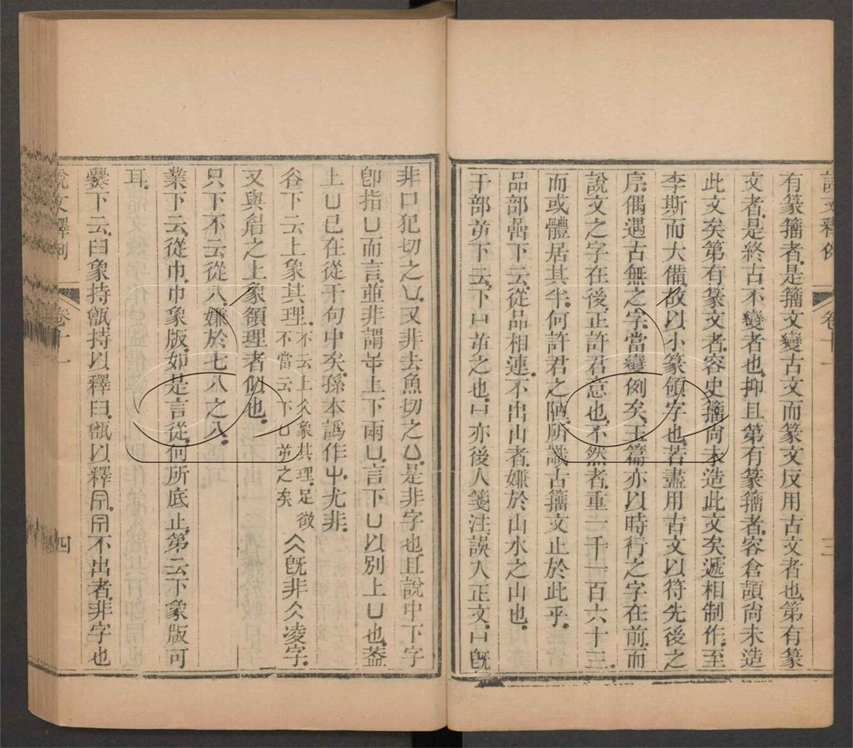 說文釋例 卷十一 三
有篆籀者是籀文變古文而篆文反用古文者也第有篆
文者是終古不變者也抑且第有篆籀者容倉頡尚未造
此文矣第有篆文者容史籀尚未造此文矣遞相制作至
李斯而大備故以小篆領字也若盡用古文以符先後之
序偶遇古無之字當變例矣玉篇亦以時行之字在前而
說文之字在後正許君意也不然者重一千一百六十三
而或體居其半何許君之陋所識古籀文止於此乎
品部喦下云從品相連不出山者嫌於山水之山也
干部屰下云下凵屰之也凵亦後人箋注誤入正文凵旣
非口犯切之凵又非去魚切之凵是非字也且說中下字
卽指凵而言並非謂屰上下兩凵言下凵以別上凵也葢
上凵已在從干句中矣孫本譌作屮尤非
谷下云上象其理不云上仌象其理足徵不當云下凵屰之矣仌旣非仌凌字
又與㕣之上象領理者似也
只下不云從八嫌於七八之八
業下云從巾巾象版如是言從何所底止第云下象版可
耳
爨下云𦥑象持甑持以釋𦥑甑以釋𠕒𠕒不出者非字也
說文釋例 卷十一 四